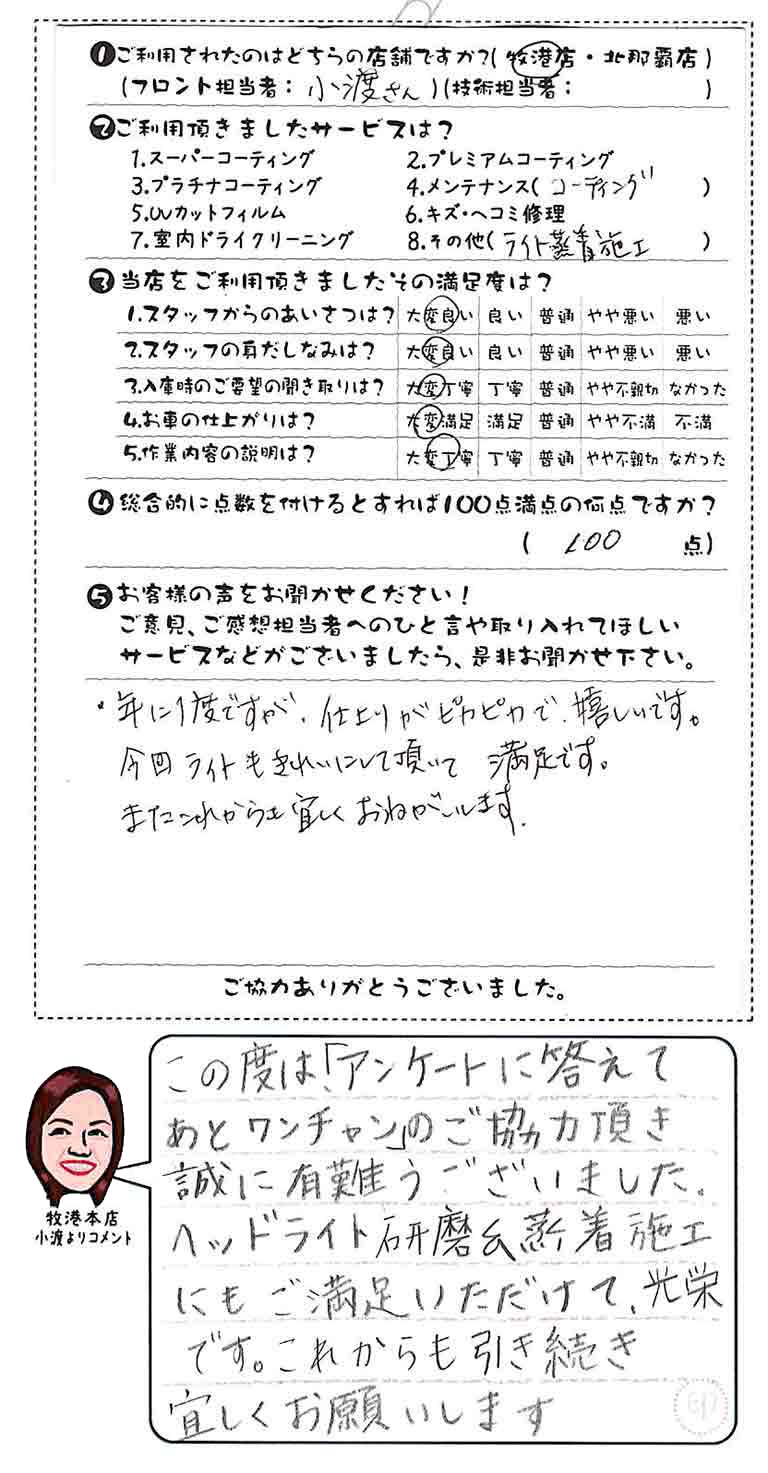 ❶ご利用されたのはどちらの店舗ですか?(牧港店・北那覇店)
(フロント担当者: 小渡さん)(技術担当者: )
❷ご利用頂きましたサービスは?
1.スーパーコーティング 2.プレミアムコーティング
3.プラチナコーティング 4.メンテナンス(コーティング )
5.UVカットフィルム 6.キズ・ヘコミ修理
7.室内ドライクリーニング 8.その他(ライト蒸着施工 )
❸当店をご利用頂きましたその満足度は?
1.スタッフからのあいさつは? 大変良い 良い 普通 やや悪い 悪い
2.スタッフの身だしなみは? 大変良い 良い 普通 やや悪い 悪い
3.入庫時のご要望の聞き取りは? 大変丁寧 丁寧 普通 やや不親切 なかった
4.お車の仕上がりは? 大変満足 満足 普通 やや不満 不満
5.作業内容の説明は? 大変丁寧 丁寧 普通 やや不親切 なかった
❹総合的に点数を付けるとすれば100点満点の何点ですか?
( 100 点)
❺お客様の声をお聞かせください!
ご意見、ご感想担当者へのひと言や取り入れてほしい
サービスなどがございましたら、是非お聞かせ下さい。
・年に1度ですが、仕上りがピカピカで、嬉しいです。
今回ライトもきれいにして頂いて 満足です。
またこれからも宜しくおねがいします。
ご協力ありがとうございました。
この度は!「アンケートに答えて
あとワンチャン」のご協力頂き
誠に有難うございました。
ヘッドライト研磨&蒸着施工
にもご満足いただけて、光栄
です。これからも引き続き
宜しくお願いします
牧港本店
小渡よりコメント